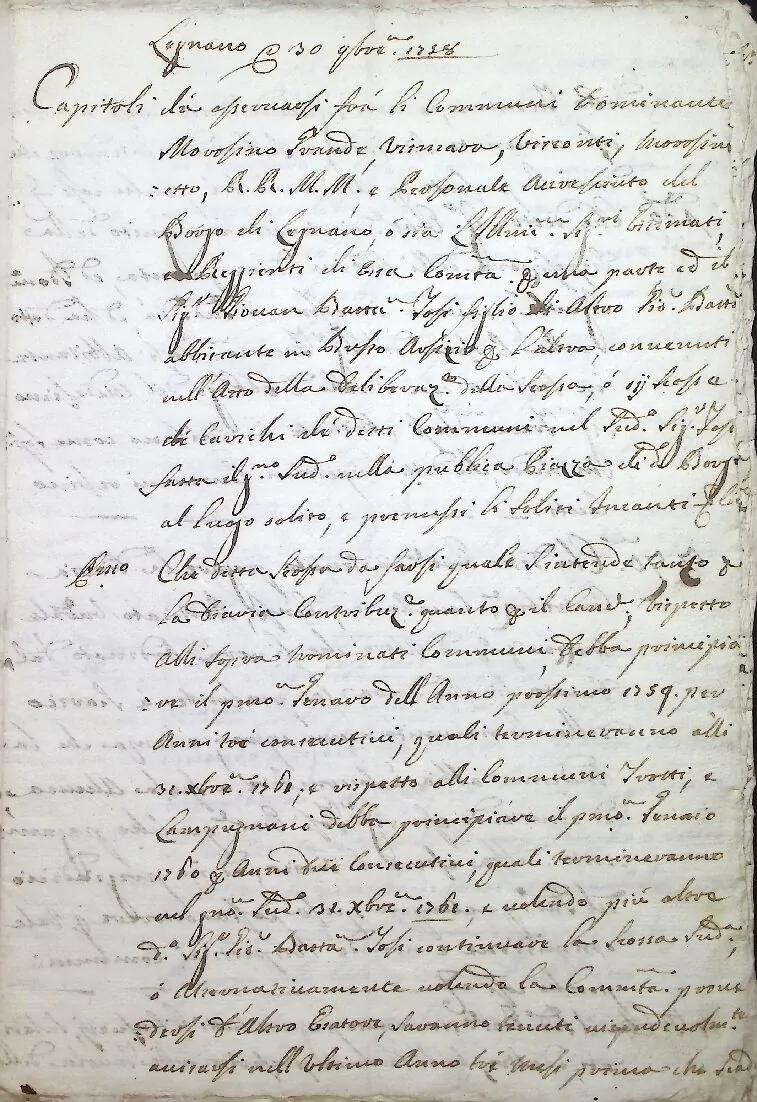 Legnano @ 30 9bre. 1758
Capitoli da osservarsi frà li Communi Dominante
Morosino Grande, Vismara, Visconti, Morosin
=etto, R. R. M. M. e Personale Accresciuto del
Borgo di Legnano, ò sia Sri Estimati,
e Reggenti di Essa Comtà. p una parte ed il
Sigr. Giouan Batta. Tosi figlio di Altro Gio. Batta
abbitante in Busto Arsizio p l'altra, conuenuti
nell'Atto della Deliberaz.e della Scossa, ò sij Scossa
de Carichi de detti Communi nel Sud.o Sig.r Tosi
fatta il gno. Sud.o nella publica Piazza di d.o Borgo
al luogo solito, e premessi li soliti Incanti
Pmo Che detta Scossa da farsi quale s'intende tanto p
la Diaria Contribuz.e quanto p il Cauo, rispetto
alli sopra nominati Communi, debba principia
=re il pmo. Genaro dell'Anno prossimo 1759. per
Anni tré consecutiui, quali termineranno alli
31. Xbre. 1761, e rispetto alli Communi Pratti, e
Campugnani debba principiare il pmo. Genaio
1760 p Anni due Consecutiui, quali termineranno
nel gno. Sud.o 31. Xbre. 1761, e uolendo più oltre
d.o Sig.r Gio. Batta. Tosi continuare la Scossa Sud.a,
ò Alternatiuamente uolendo la Commtà. proue
dersi d'Altro Esatore, saranno tenuti uicendeuolmte
auisarsi nell'Vltimo Anno tré mesi prima che